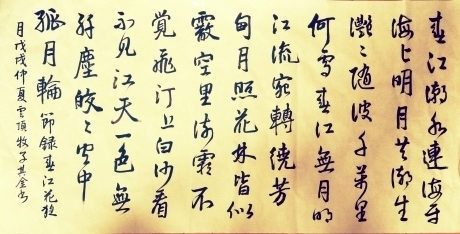 春江潮水連海平
海上明月共潮生
灩〻随波千萬里
何處春江無月明
江流宛轉繞芳
甸月照花林皆似
霰空里流霜不
覺飛汀上白沙看
不見江天一色無
纤塵皎〻空中
孤月輪 節録春江花夜
月戊戌仲夏雲頂牧子其金书